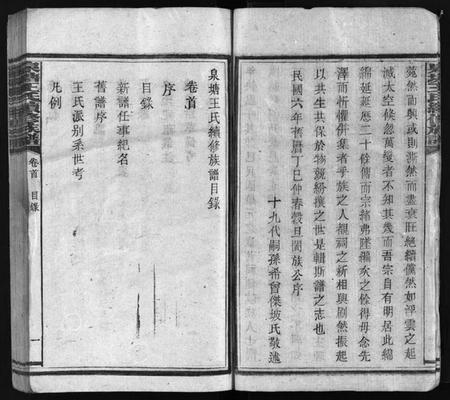 菀然而興或則澌然而盡衰旺絕續儵然如浮雲之起
滅太空候忽萬變者不知其幾而吾宗自有明居此綿
綿延延歷二十餘傳而宗緒弗墜繼次之餘得毋念先
澤而忻懼併集者乎族之人覩祠之新相與勵然振起
以共生共保於物競紛擾之世是輯斯譜之志也
民國六年舊曆丁巳仲春穀旦闔族公序
十九代嗣孫希曾傑坡氏敬述
泉塘王氏續修族譜目錄
卷首
序
目錄
新譜任事紀名
舊譜序
王氏派別系世考
凡例
泉塘王氏續修族譜
卷首 目錄
一